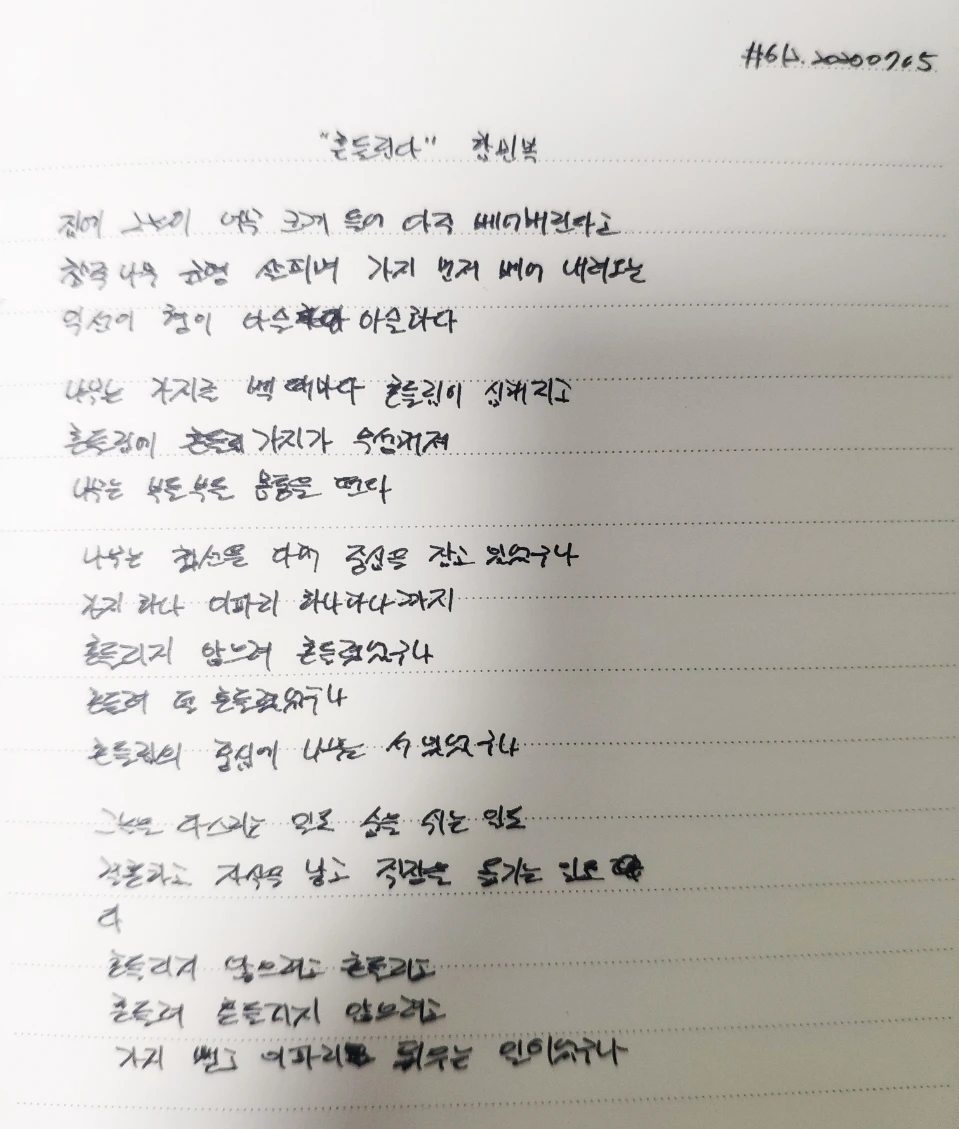 #62. 20200705
"흔들린다" 함민복
집에 그늘이 너무 크게 들어 아주 베어버린다고
참죽나무 균형 살피며 가지 먼저 베어 내려오는
익선이 형이 아슬아슬하다
나무는 가지를 벨 때마다 흔들림이 심해지고
흔들림에 흔들림 가지가 무성해져
나무는 부들부들 몸통을 떤다
나무는 최선을 다해 중심을 잡고 있었구나
가지 하나 이파리 하나하나까지
흔들리지 않으려 흔들렸었구나
흔들려 덜 흔들렸었구나
흔들림의 중심에 나무는 서 있었구나
그늘을 다스리는 일도 숨을 쉬는 일도
결혼하고 자식을 낳고 직장을 옮기는 일도
다
흔들리지 않으려고 흔들리고
흔들려 흔들리지 않으려고
가지 뻗고 이파리 틔우는 일이었구나